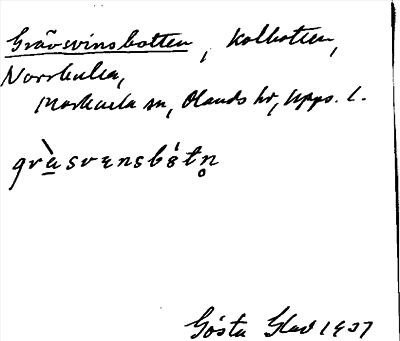 Grävsvinsbotten, Kolbotten,
Norrhulta,
Morkarla sn, Olands hd, Upps. l.
gràsvensbót
Gösta Glad 1937